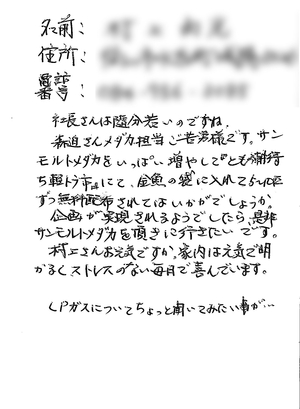 名前:
住所:
電話
番号:
社長さんは随分若いのですね。
森迫さんメダカ担当ご苦労様です。サン
モルトメダカをいっぱい増やして
ち軽トラ市にて、金魚の袋に入れて5〜10匹
ずつ無料配布されてはいかがでしょうか。
企画が実現されるようでしたら、是非
サンモルトメダカを頂きに行きたいです。
村上さんお元気ですか。家内は元気で明
かるくストレスのない毎日で喜んでいます。
LPガスについてちょっと聞いてみたい事が…